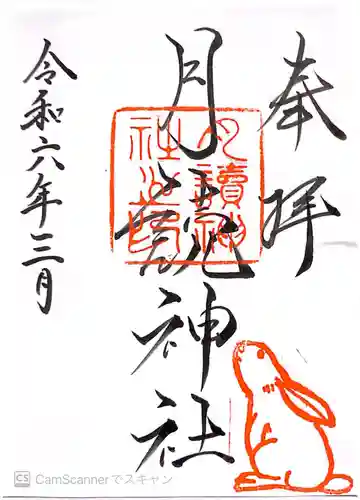 奉拝
月讀神社
月讀神
社之印
令和六年三月
CS CamScannerでスキャン